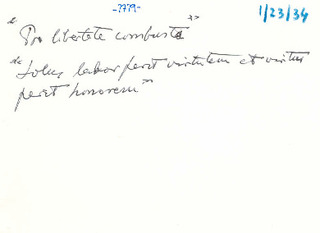 -7779-
1/23/34
" Pro libertate combusta "
" Solus labor parit virtutem et virtus
parit honorem "